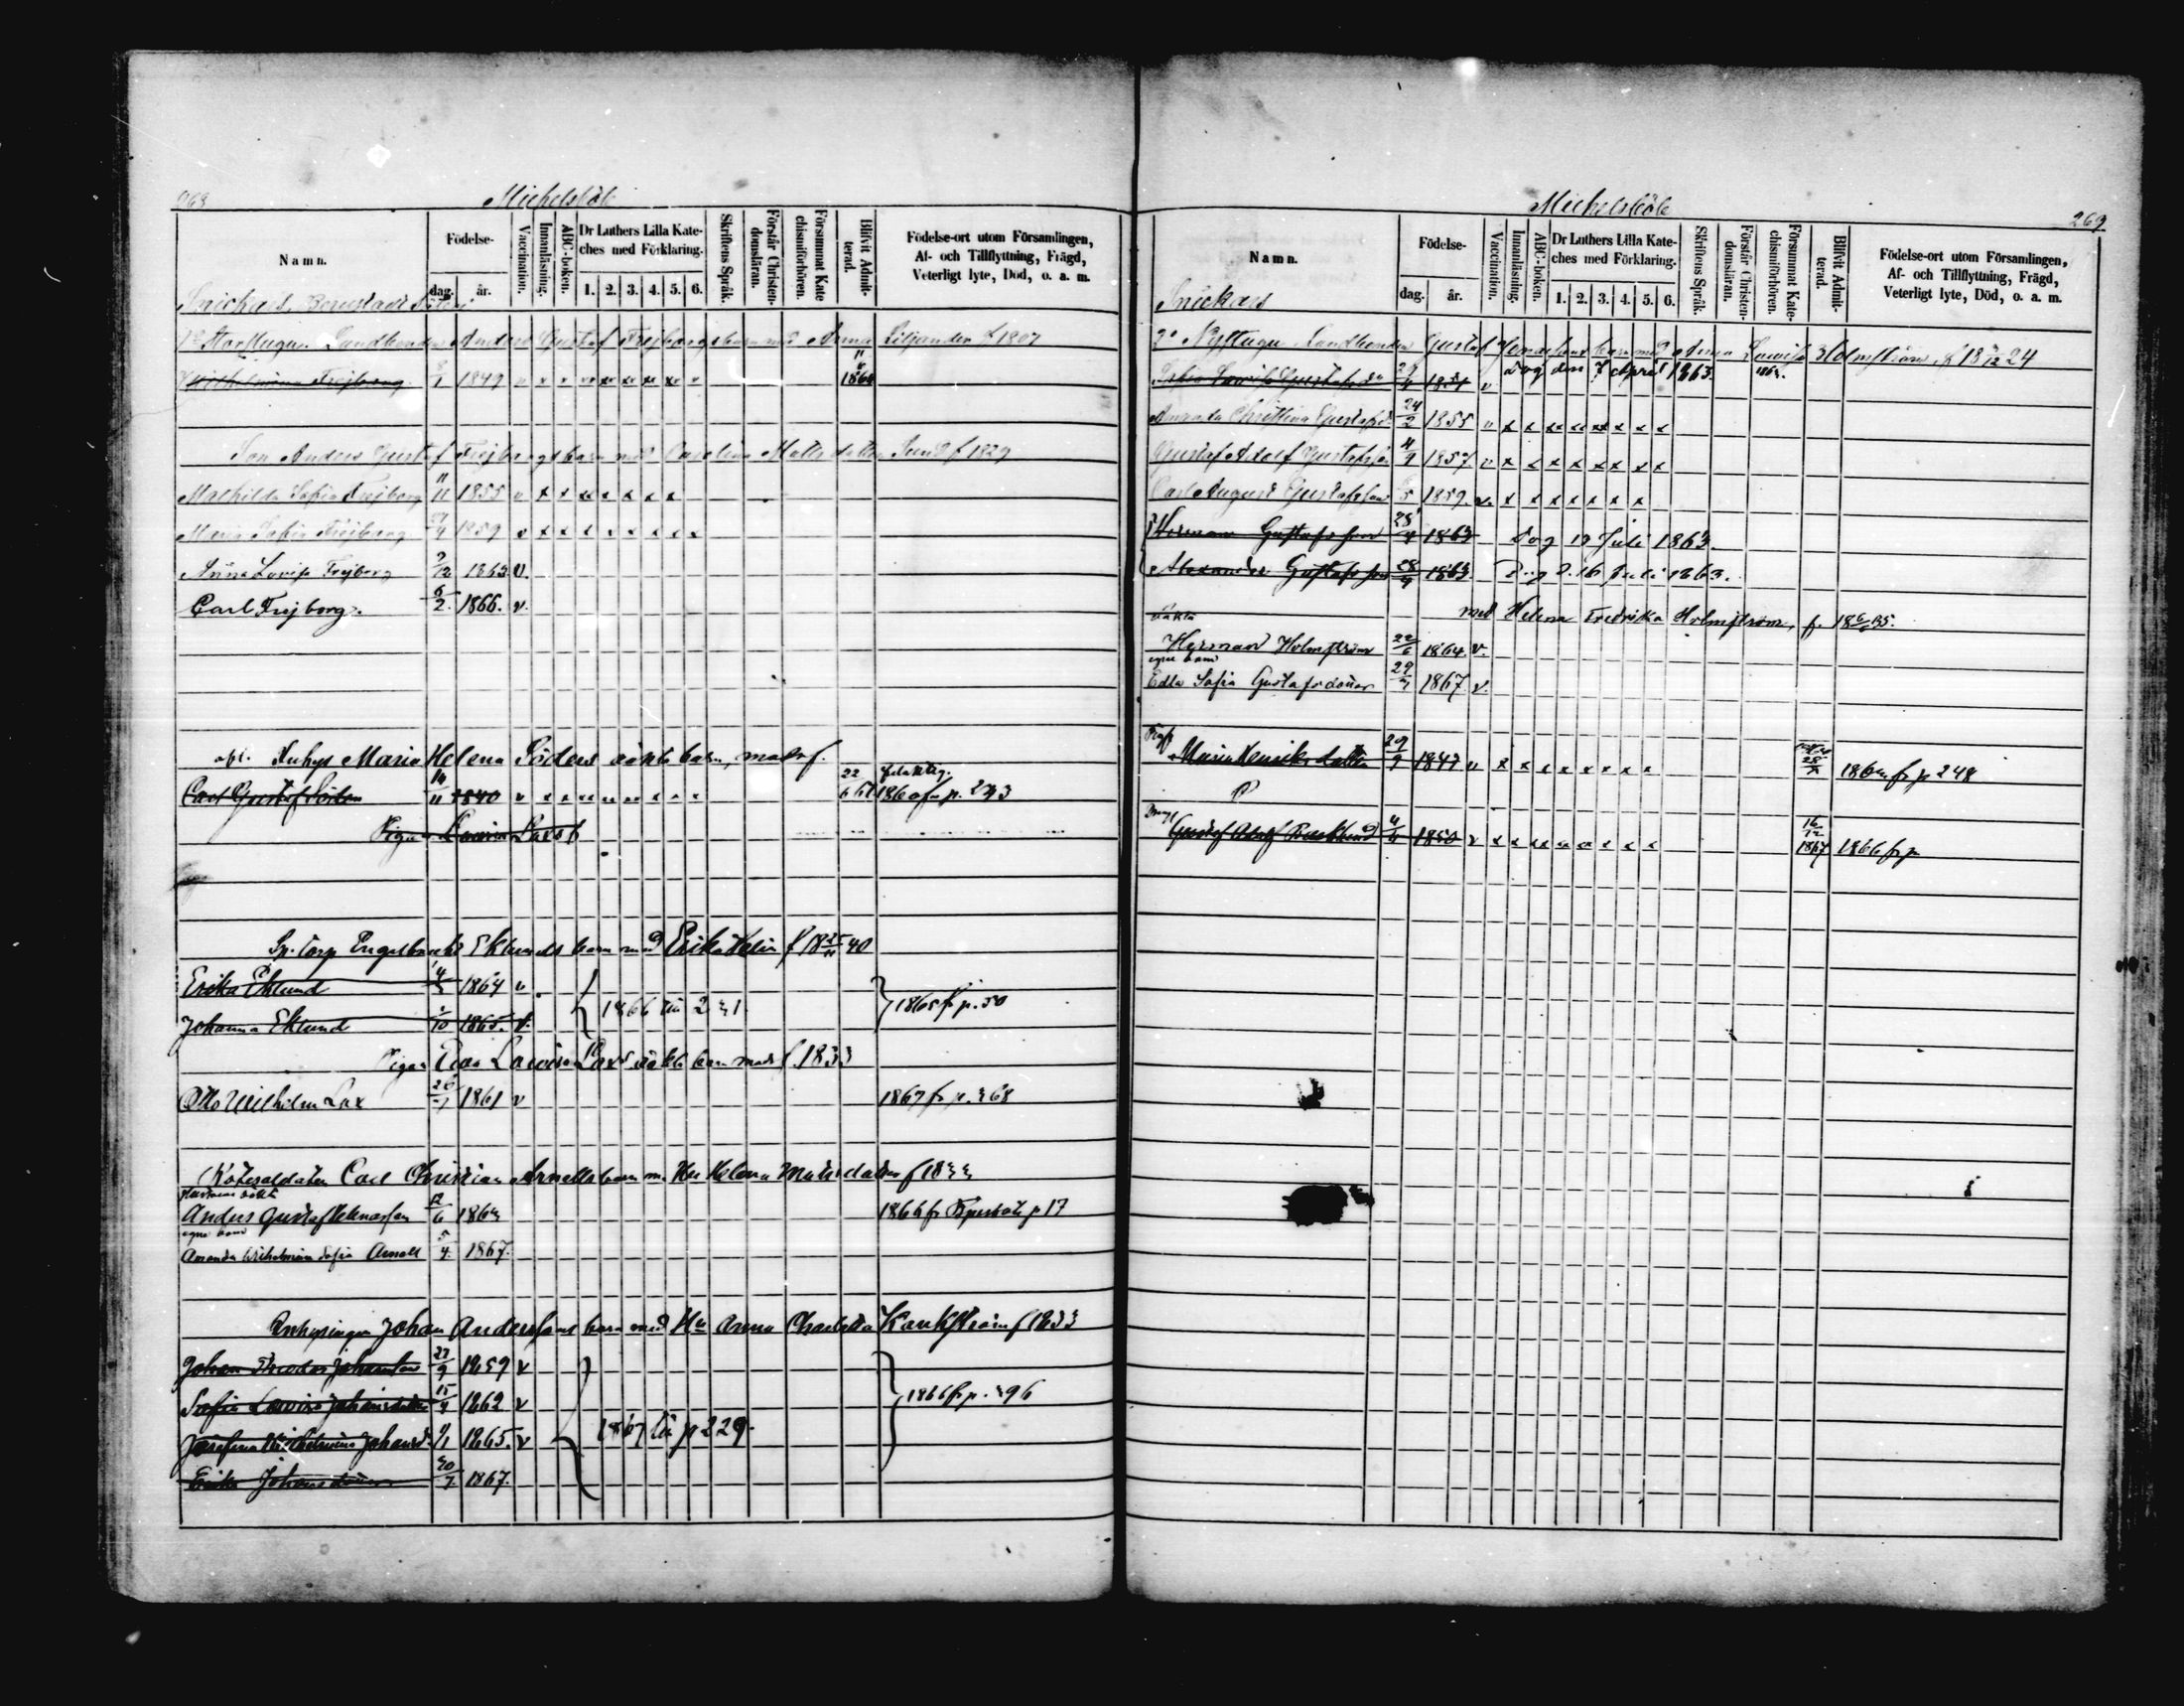 268
Michelsböle
Namn.
Födelse-
dag.
år.
Vaccination.
Innanläsning.
ABC-boken.
Dr Luthers Lilla Kateches med Förklaring.
1. 2. 3. 4. 5. 6.
Skriftens Språk.
Förstår Christendomsläran.
Försummat Katechismiförhören.
Blifvit Admitterad.
Födelse-ort utom Församlingen, Af- och Tillflyttning, Frägd, Veterligt lyte, Död, o. a. m.
Landbonden Anders Gustaf Frejborgs barn med Anna Liljander f 1807
Wilhelmina Frejborg 1849 v 1864
Son Anders Gustaf Frejborgs barn med Carolina Mattsdotter Sund f 1829
Mathilda Sofia Frejborg 11/11 1855 v x x x x x x x
Maria Sofia Frejborg 27/4 1859 v x x x x x x x x
Anna Lovisa Frejborg 9/12 1863 v.
Carl Frejborg. 6/2 1866. v.
Inhys Maria Helena Söders oäkta barn, mod. f.
Carl Gustaf Söder 14/11 1840 v 22/6 61 1860 fr p. 293
Pigan Lovisa Lax
Sp. Torp Engelbrecht Eklunds barn med Erika Helin f 18 25/11 40
Erika Eklund 1864 v
1866 till 291 1865 fr p. 50
Johanna Eklund 1/10 1865. v.
Pigan Eva Lovisa Lax oäkta barn mod f. 1833
Otto Wilhelm Lax 26/7 1861 v 1867 fr p. 368
Rotesoldaten Carl Christian Arnells barn m. Hu Helena Matsdotter f 1833
Hustruns oäkta
Anders Gustaf Helenasson 12/6 1863 1866 fr p 17
egne barn
Amanda Wilhelmina Sofia Arnell 5/4. 1867.
Inhysingen Johan Anderssons barn med Hu Anna Charlotta Kankström f 1833
Johan Theodor Johansson 27/9 1859 v
Sofia Lovisa Johansdotter 15/4 1862 v 1866 fr p. 396
Josefina Wilhelmina Johansd. 1865. v 1867 till p 229.
Erika Johansdotter 30/7 1867.
Michelsböle
269
Namn.
Födelse-
dag.
år.
Vaccination.
Innanläsning.
ABC-boken.
Dr Luthers Lilla Kateches med Förklaring.
1. 2. 3. 4. 5. 6.
Skriftens Språk.
Förstår Christendomsläran.
Försummat Katechismiförhören.
Blifvit Admitterad.
Födelse-ort utom Församlingen, Af- och Tillflyttning, Frägd, Veterligt lyte, Död, o. a. m.
Snickars
2o Nystugu Landbonden Gustaf Jonassons barn med Anna Lovisa Holmström, f 18 12 24
Lovisa Gustafsdr 29 1851 v Dog den 7 April 1863.
Amanda Christina Gustafsd. 24/2 1855 v x x x x x x x x
Gustaf Adolf Gustafsson 4/9 1857 v x x x x x x x x
Carl August Gustafsson 5 1859. v. x x x x x x x
Herman Gustafsson 28/4 1863 Dog 12 Juli 1863.
Alexander Gustafsson 28/4 1863 Dog d. 16 Juli 1863.
med Helena Fredrika Holmström, f. 18 35.
oäkta
Herman Holmström 22/6 1864. v.
egne barn
Edla Sofia Gustafsdotter 29 1867. v.
Maria Henriksdotter 29/9 1847 v x x x x x x x x 1864 fr p 248
Dreng Gustaf Adolf Backlund 4/4 1850 v x x x x x x x x 16/12 1867 1866 fr p